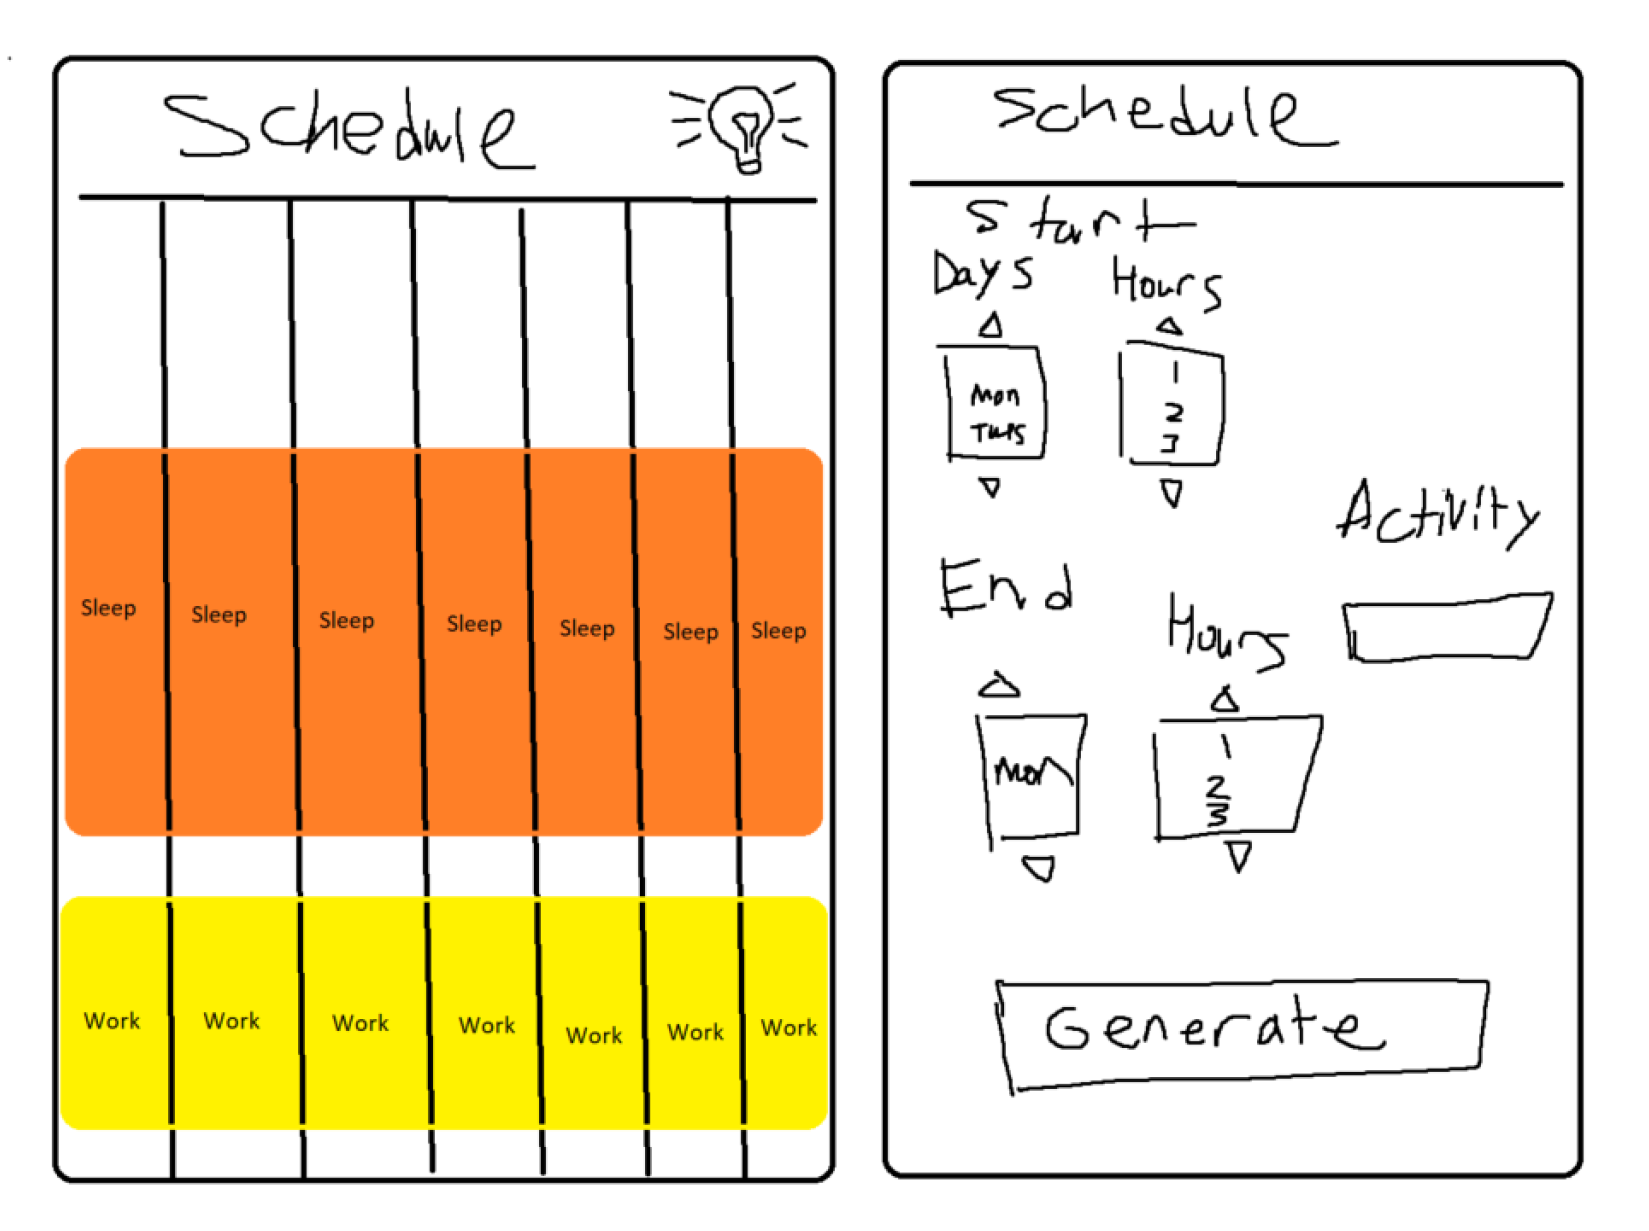 Schedule
Sleep Sleep Sleep Sleep Sleep Sleep Sleep
Work Work Work Work Work Work Work
Schedule
Start
Days Hours
Mon
Tues
1
2
3
Activity
End
Hours
Mon
1
2
3
Generate